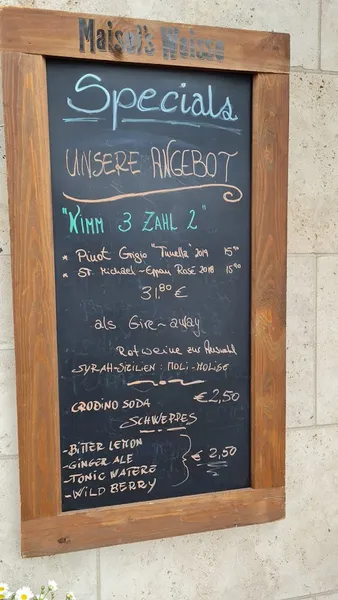 Maisel's Weisse
Specials
UNSERE ANGEBOT
"NIMM 3 ZAHL 2"
* Pinot Grigio "Tunella" 2019 15.90
* St. Michael-Eppan Rosé 2018 15.90
31.80 €
als Give-away
Rotweine zur Auswahl
SYRAH-SIZILIEN : MOLI-MOLISE
CRODINO SODA €2,50
SCHWEPPES
- BITTER LEMON
- GINGER ALE
- TONIC WATERE
- WILD BERRY
€ 2,50